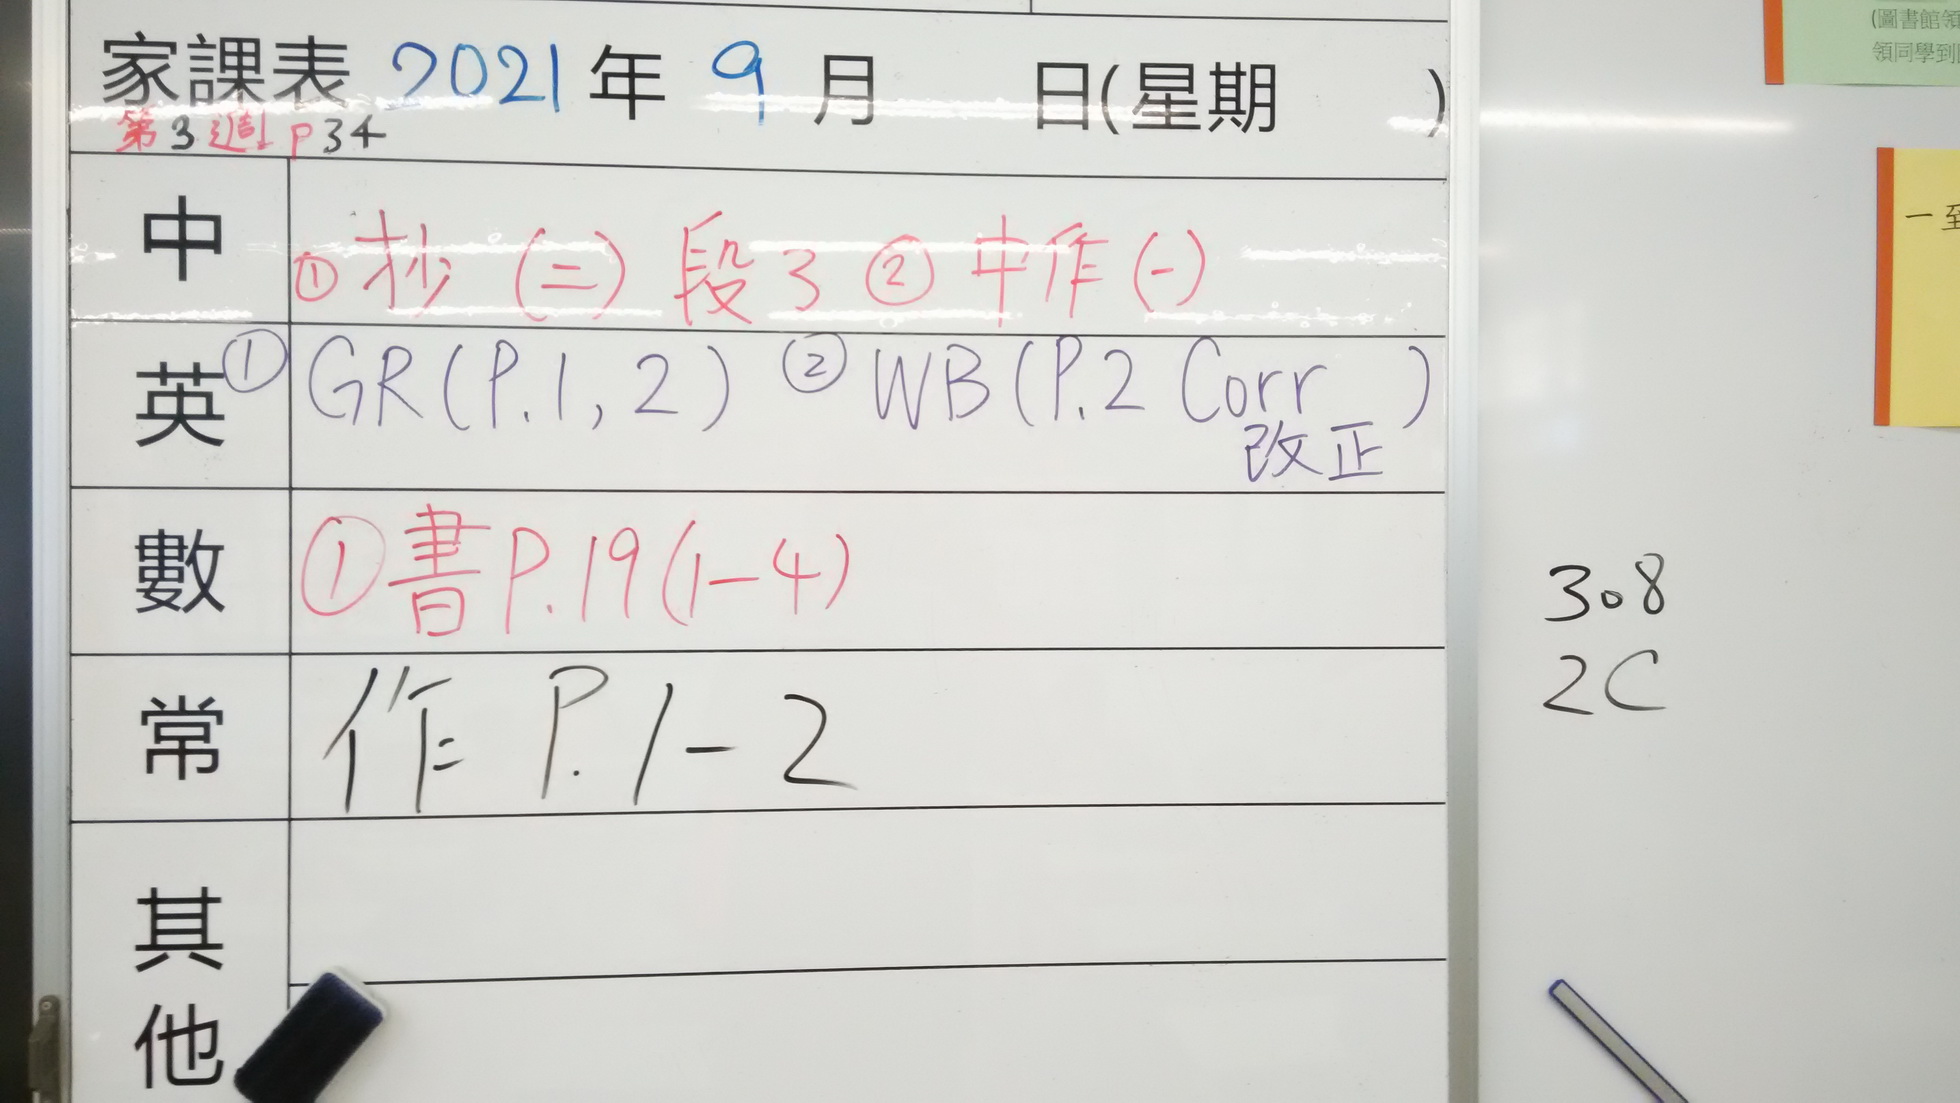 家課表 2021 年 9 月 日(星期 )
第3週 P34
中 ① 抄 (二) 段 3 ② 中作 (一)
英 ① GR(P.1, 2) ② WB(P.2 Corr )
改正
數 ① 書 P.19 (1-4)
常 作 P.1-2
其
他
308
2C
(圖書館領
領同學到
一至